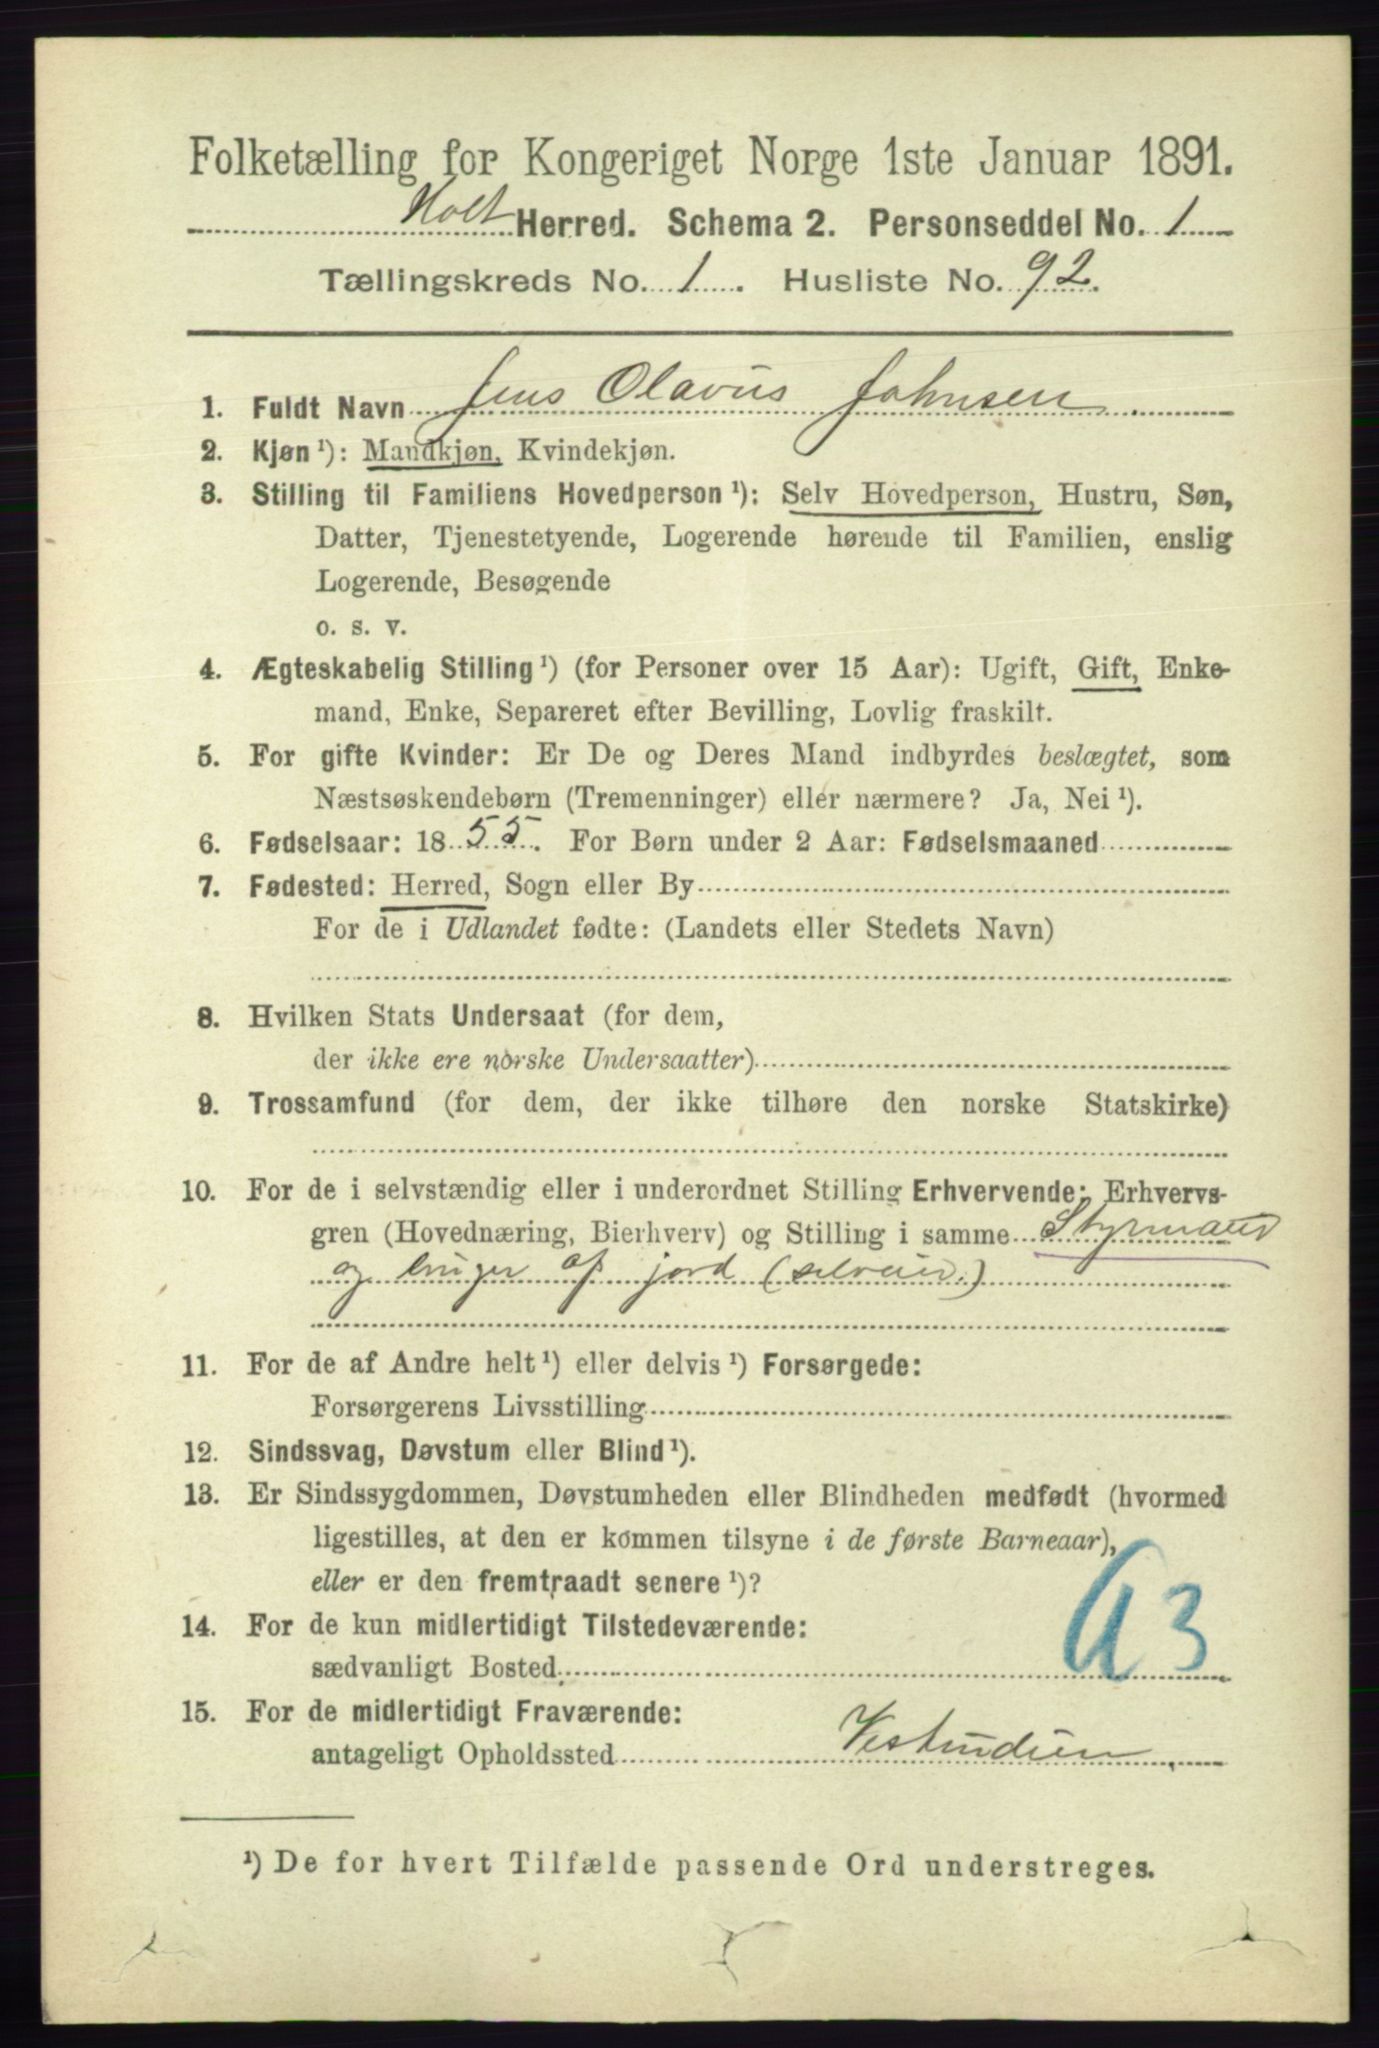 Folketælling for Kongeriget Norge 1ste Januar 1891.
Holt Herred. Schema 2. Personseddel No. 1
Tællingskreds No. 1. Husliste No. 92.
1. Fuldt Navn Jens Olavus Johnsen
2. Kjøn ¹): Mandkjøn, Kvindekjøn.
3. Stilling til Familiens Hovedperson ¹): Selv Hovedperson, Hustru, Søn,
Datter, Tjenestetyende, Logerende hørende til Familien, enslig
Logerende, Besøgende
o. s. v.
4. Ægteskabelig Stilling ¹) (for Personer over 15 Aar): Ugift, Gift, Enke-
mand, Enke, Separeret efter Bevilling, Lovlig fraskilt.
5. For gifte Kvinder: Er De og Deres Mand indbyrdes beslægtet, som
Næstsøskendebørn (Tremenninger) eller nærmere? Ja, Nei ¹).
6. Fødselsaar: 1855. For Børn under 2 Aar: Fødselsmaaned
7. Fødested: Herred, Sogn eller By
For de i Udlandet fødte: (Landets eller Stedets Navn)
8. Hvilken Stats Undersaat (for dem,
der ikke ere norske Undersaatter)
9. Trossamfund (for dem, der ikke tilhøre den norske Statskirke)
10. For de i selvstændig eller i underordnet Stilling Erhvervende: Erhvervs-
gren (Hovednæring, Bierhverv) og Stilling i samme Styrmand
og bruger af jord (selveier.)
11. For de af Andre helt ¹) eller delvis ¹) Forsørgede:
Forsørgerens Livsstilling
12. Sindssvag, Døvstum eller Blind ¹).
13. Er Sindssygdommen, Døvstumheden eller Blindheden medfødt (hvormed
ligestilles, at den er kommen tilsyne i de første Barneaar),
eller er den fremtraadt senere ¹)?
14. For de kun midlertidigt Tilstedeværende:
sædvanligt Bosted
15. For de midlertidigt Fraværende:
antageligt Opholdssted Vestindien
¹) De for hvert Tilfælde passende Ord understreges.